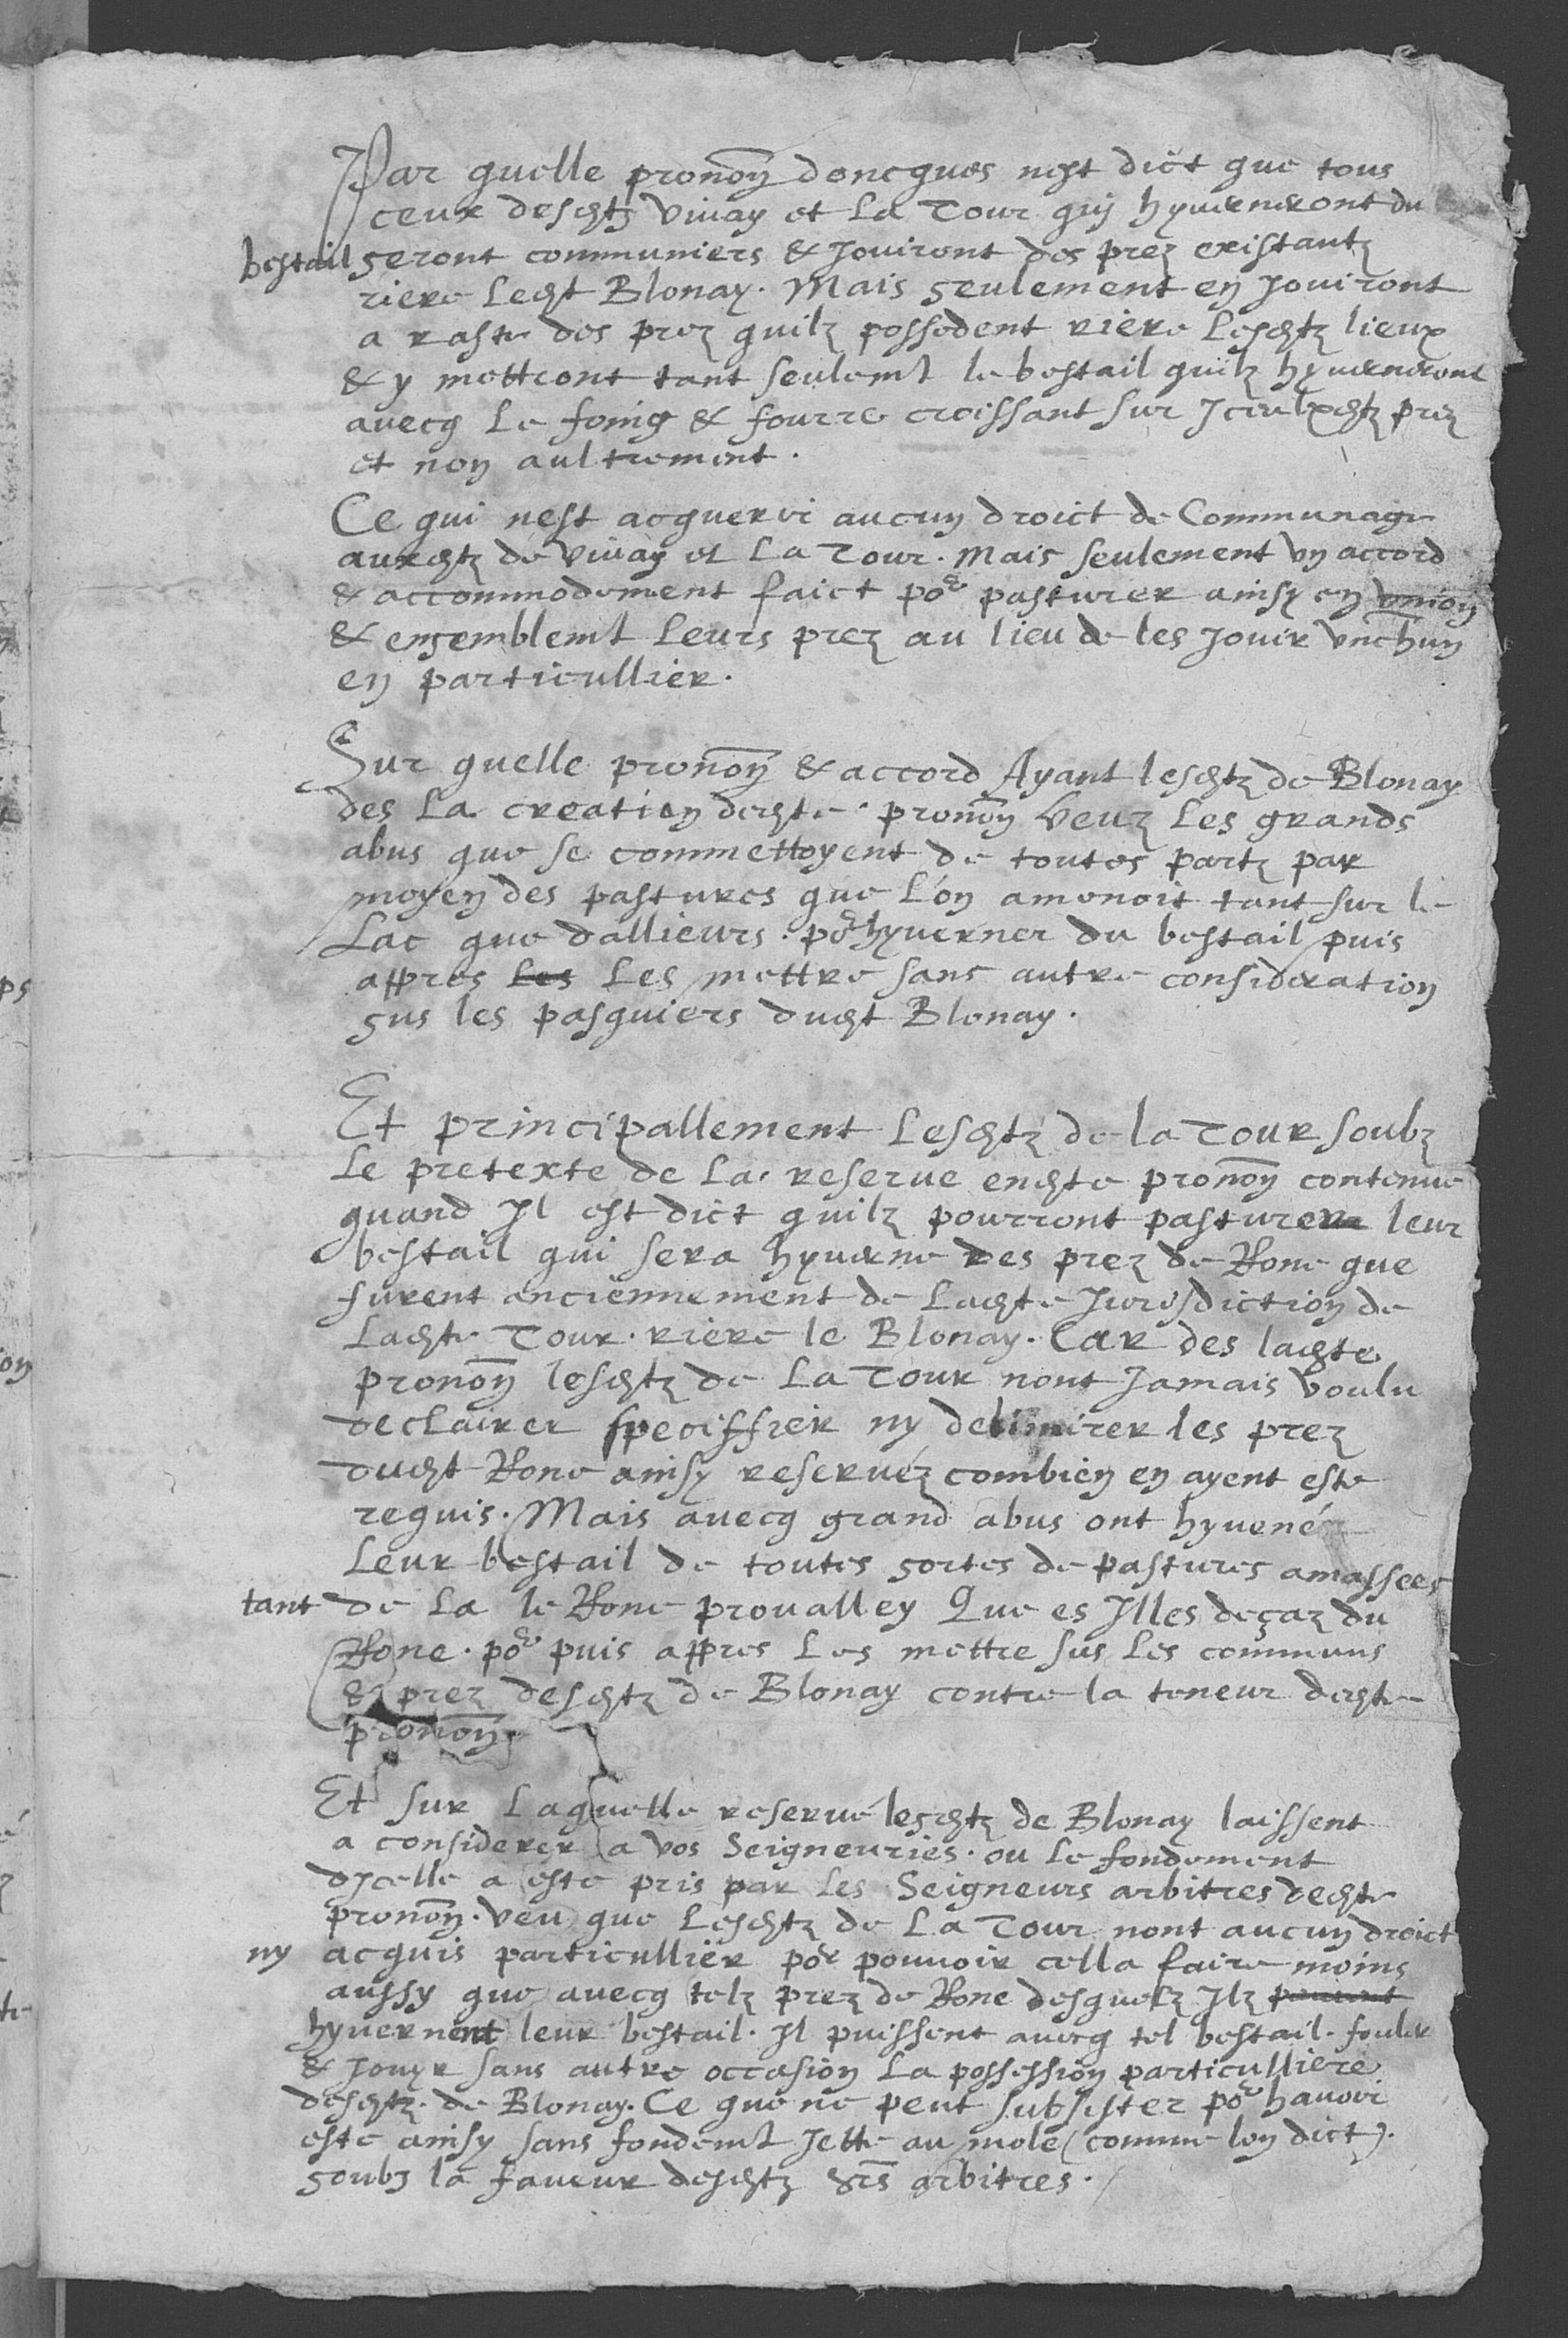 Par quelle pronon͠ doncques nest dict que tous
ceux desdtz Vivay et La Tour qui hyverneront du
bestail seront communiers & Jouiront des prez existantz
riere Ledit Blonay. Mais seulement en Jouiront
a raste des prez quilz possedent riere Lesdtz lieux
& y mettront tant seulemt le bestail quilz hyverneront
avecq Le foing & fourre croissant sur Iceulxdtz prez
et non aultrement.
Ce qui nest acquerir aucun droict de Communage
auxdtz de Vivay et La Tour. Mais seulement un accord
& accommodement faict por pasturer ainsy en union
& ensemblemt Leurs prez au lieu de les Jouir unchun
en particullier.
Sur quelle pronon͠ & accord Ayant lesdtz de Blonay
des La creation dedte. pronon͠ veuz Les grands
abus que se commettoyent de toutes partz par
moyen des pastures que L'on amenoit tant sur le
Lac que dallieurs. por hyverner du bestail puis
appres Les Les mettre sans autre consideration
sus les pasquiers dudt Blonay.
Et principallement Lesdtz de la Tour soubz
Le pretexte de La reserve endte pronon͠ contenue
quand Il est dict quilz pourront pasturer leur
bestail qui sera hyverne des prez de Rone que
furent anciennement de Ladte Jurisdiction de
Ladte Tour. riere le Blonay. Car des ladte
pronon͠ lesdtz de La Tour nont Jamais voulu
declairer speciffier ny delimirer les prez
dudt Rone ainsy reservéz combien en ayent este
requis. Mais avecq grand abus ont hyvené
Leur bestail de toutes sortes de pastures amassees
tant de La le Rone provalley Que es Illes deçaz du
Rone. por puis appres Les mettre sus Les communs
& prez desdtz de Blonay contre la teneur dedte
pronon͠.
Et sur Laquelle reserve lesdtz de Blonay laissent
a considerer a vos Seigneuries. ou Le fondement
dicelle a este pris par Les Seigneurs arbitres dedte
pronon͠. veu que Lesdtz de La Tour nont aucun droict
ny acquis particullier por pouvoir cella faire moins
aussy que avecq telz prez de Rone desquelz Ilz peuvent
hyvernent leur bestail. Il puissent avecq tel bestail. fouler
& Jouyr sans autre occasion La possession particulliere
desdtz. de Blonay. Ce que ne peut subsister por havoir
este ainsy sans fondemt Jette au mole (comme lon dict).
soubz la faveur desdtz Srs arbitres.